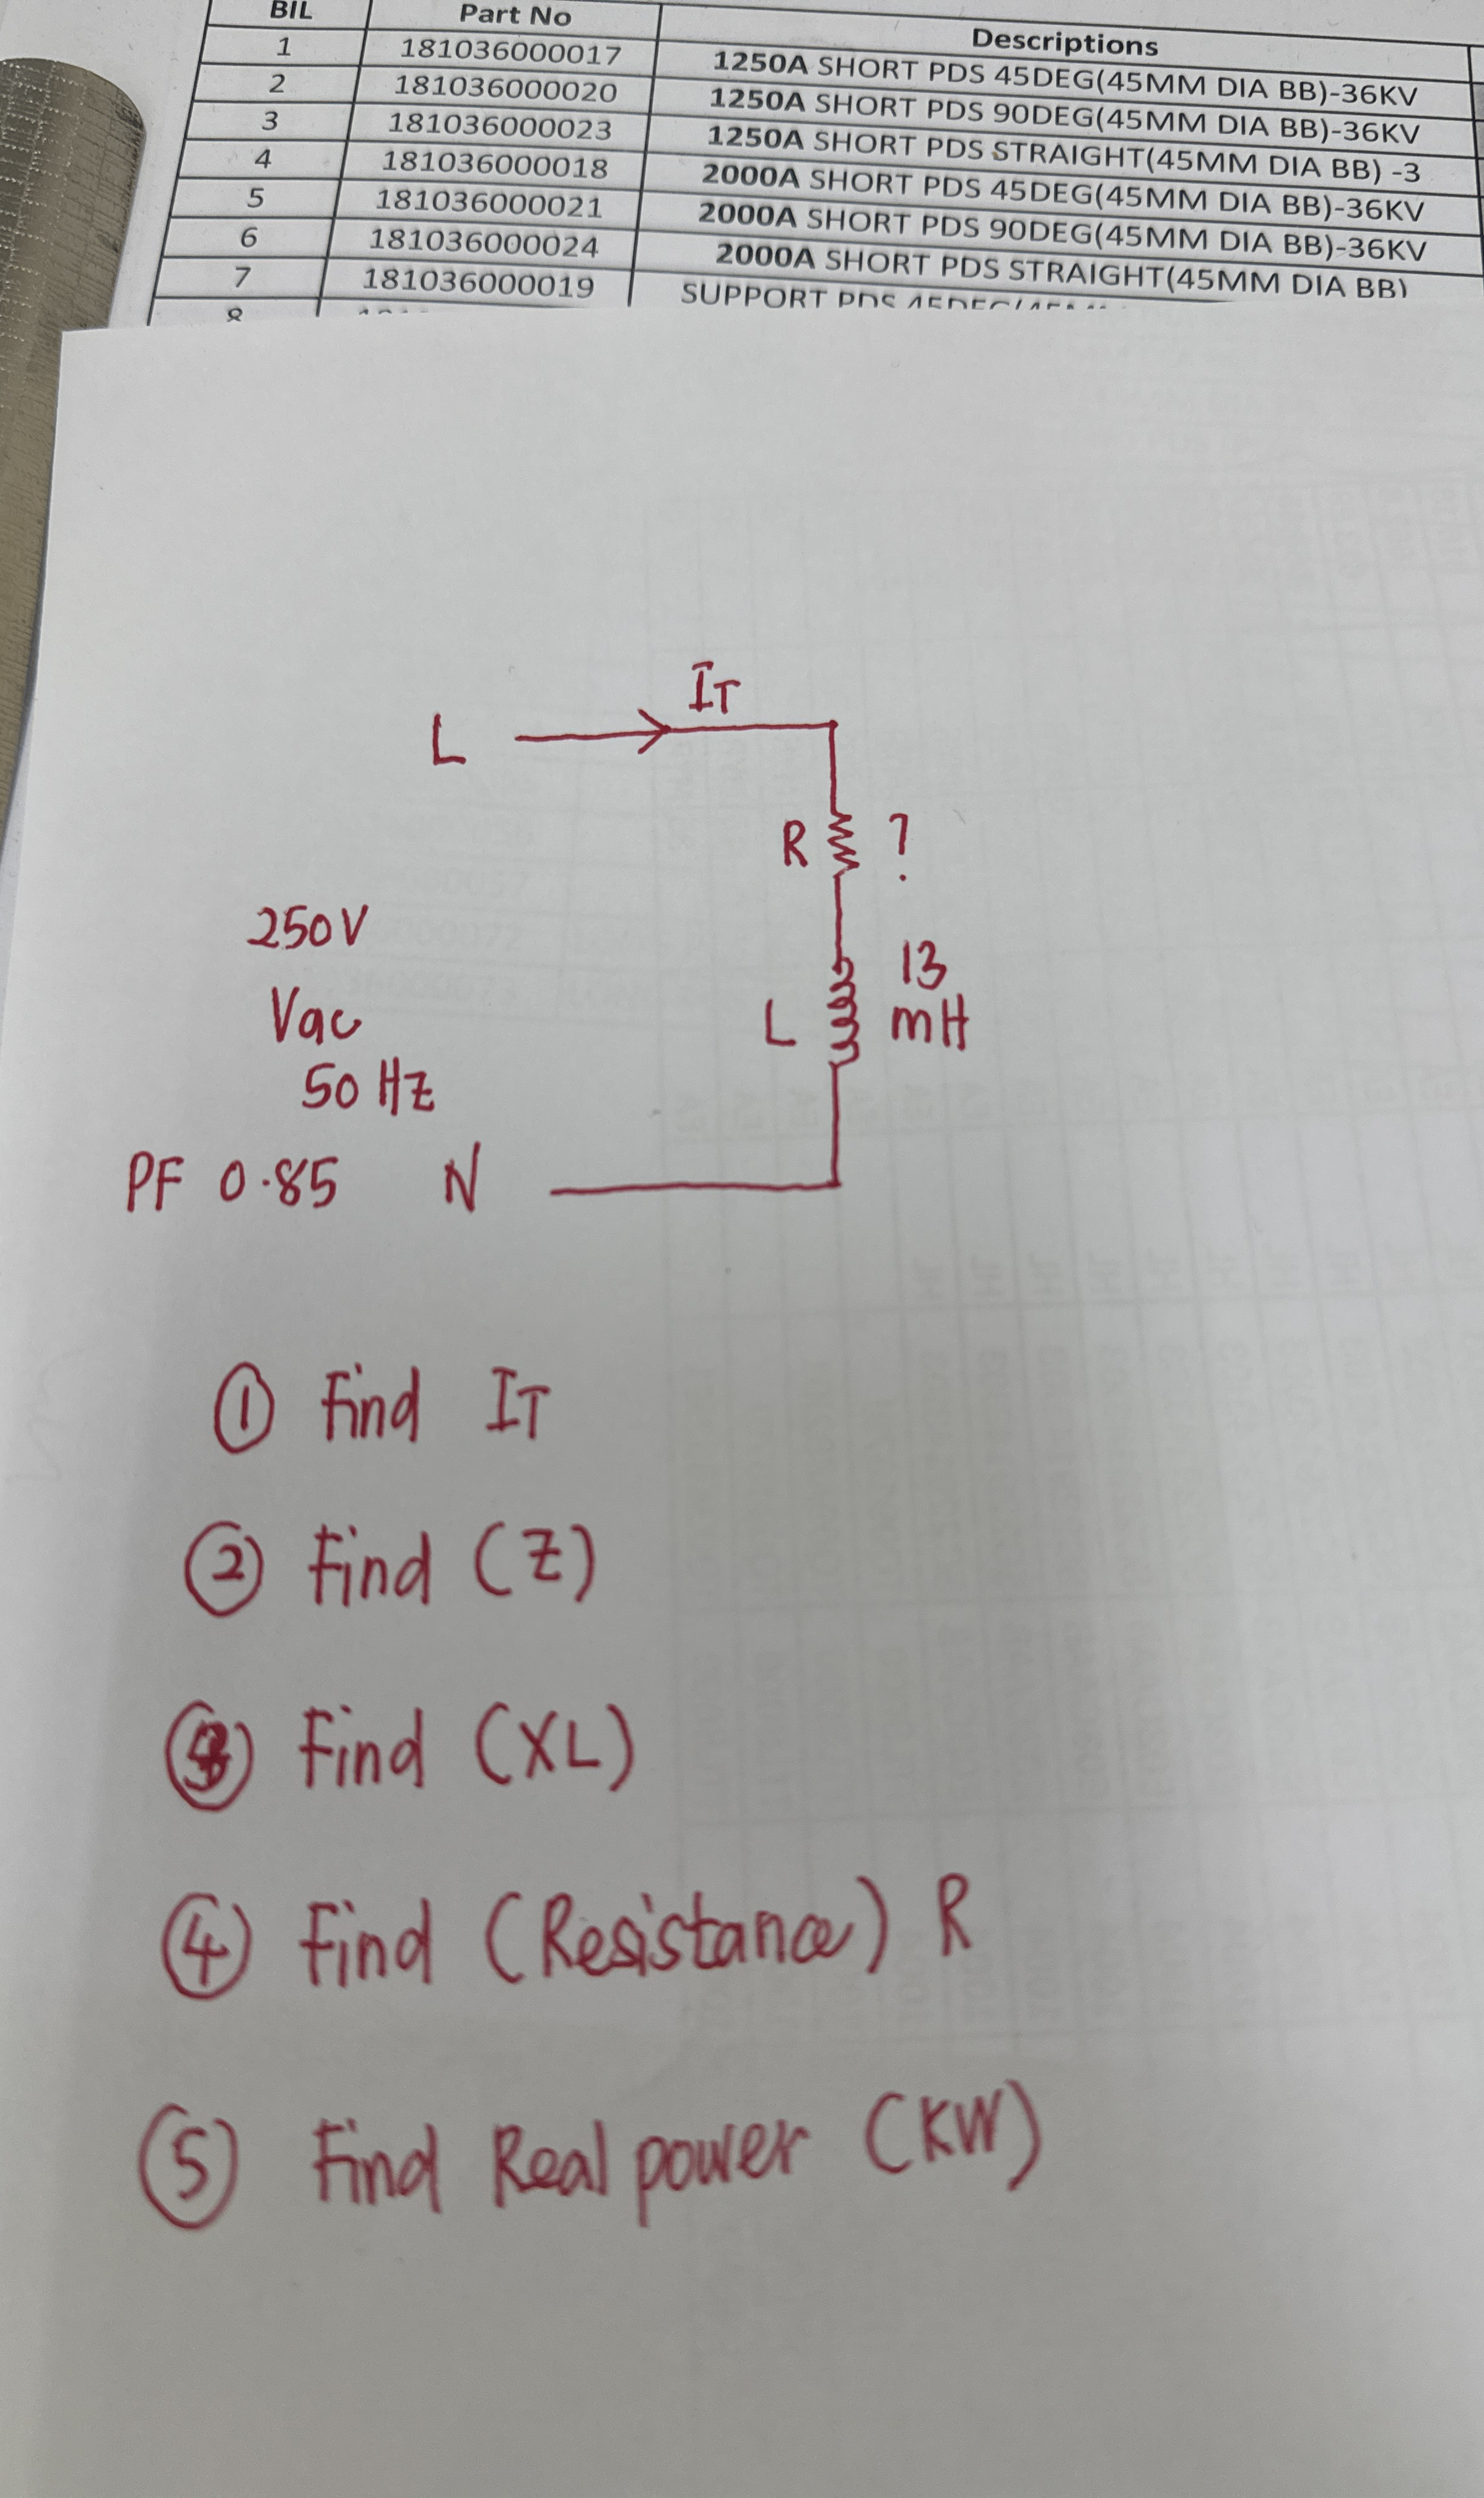 BIL Part No Descriptions
1 181036000017 1250A SHORT PDS 45DEG(45MM DIA BB)-36KV
2 181036000020 1250A SHORT PDS 90DEG(45MM DIA BB)-36KV
3 181036000023 1250A SHORT PDS STRAIGHT(45MM DIA BB) -3
4 181036000018 2000A SHORT PDS 45DEG(45MM DIA BB)-36KV
5 181036000021 2000A SHORT PDS 90DEG(45MM DIA BB)-36KV
6 181036000024 2000A SHORT PDS STRAIGHT(45MM DIA BB)
7 181036000019 SUPPORT PDS
8
IT
L
R ?
250V
13
Vac L mH
50 Hz
PF 0.85 N
① Find IT
② Find (Z)
③ Find (XL)
④ Find (Resistance) R
⑤ Find Real power (KW)